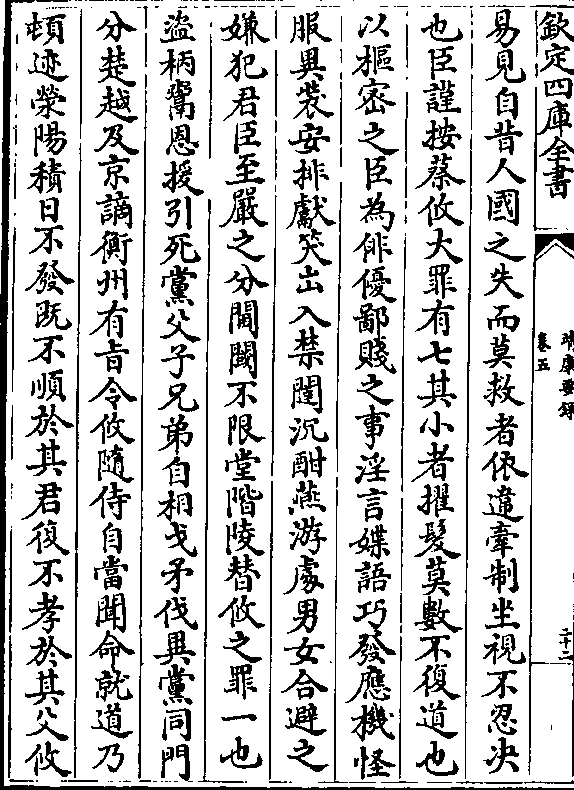 欽定四庫全書
靖康要錄
卷五
二十二
易見自昔人國之失而莫救者依違牽制坐視不忍决
也臣謹按蔡攸大罪有七其小者擢髮莫數不復道也
以樞密之臣為俳優鄙賤之事淫言媟語巧發應機怪
服異裝安排獻笑出入禁闥沉酣燕游處男女合避之
嫌犯君臣至嚴之分閫閾不限堂階陵替攸之罪一也
盜柄鬻恩援引死黨父子兄弟自相戈矛伐異黨同門
分楚越及京謫衡州有旨令攸隨侍自當聞命就道乃
頓迹滎陽積日不發既不順於其君復不孝於其父攸